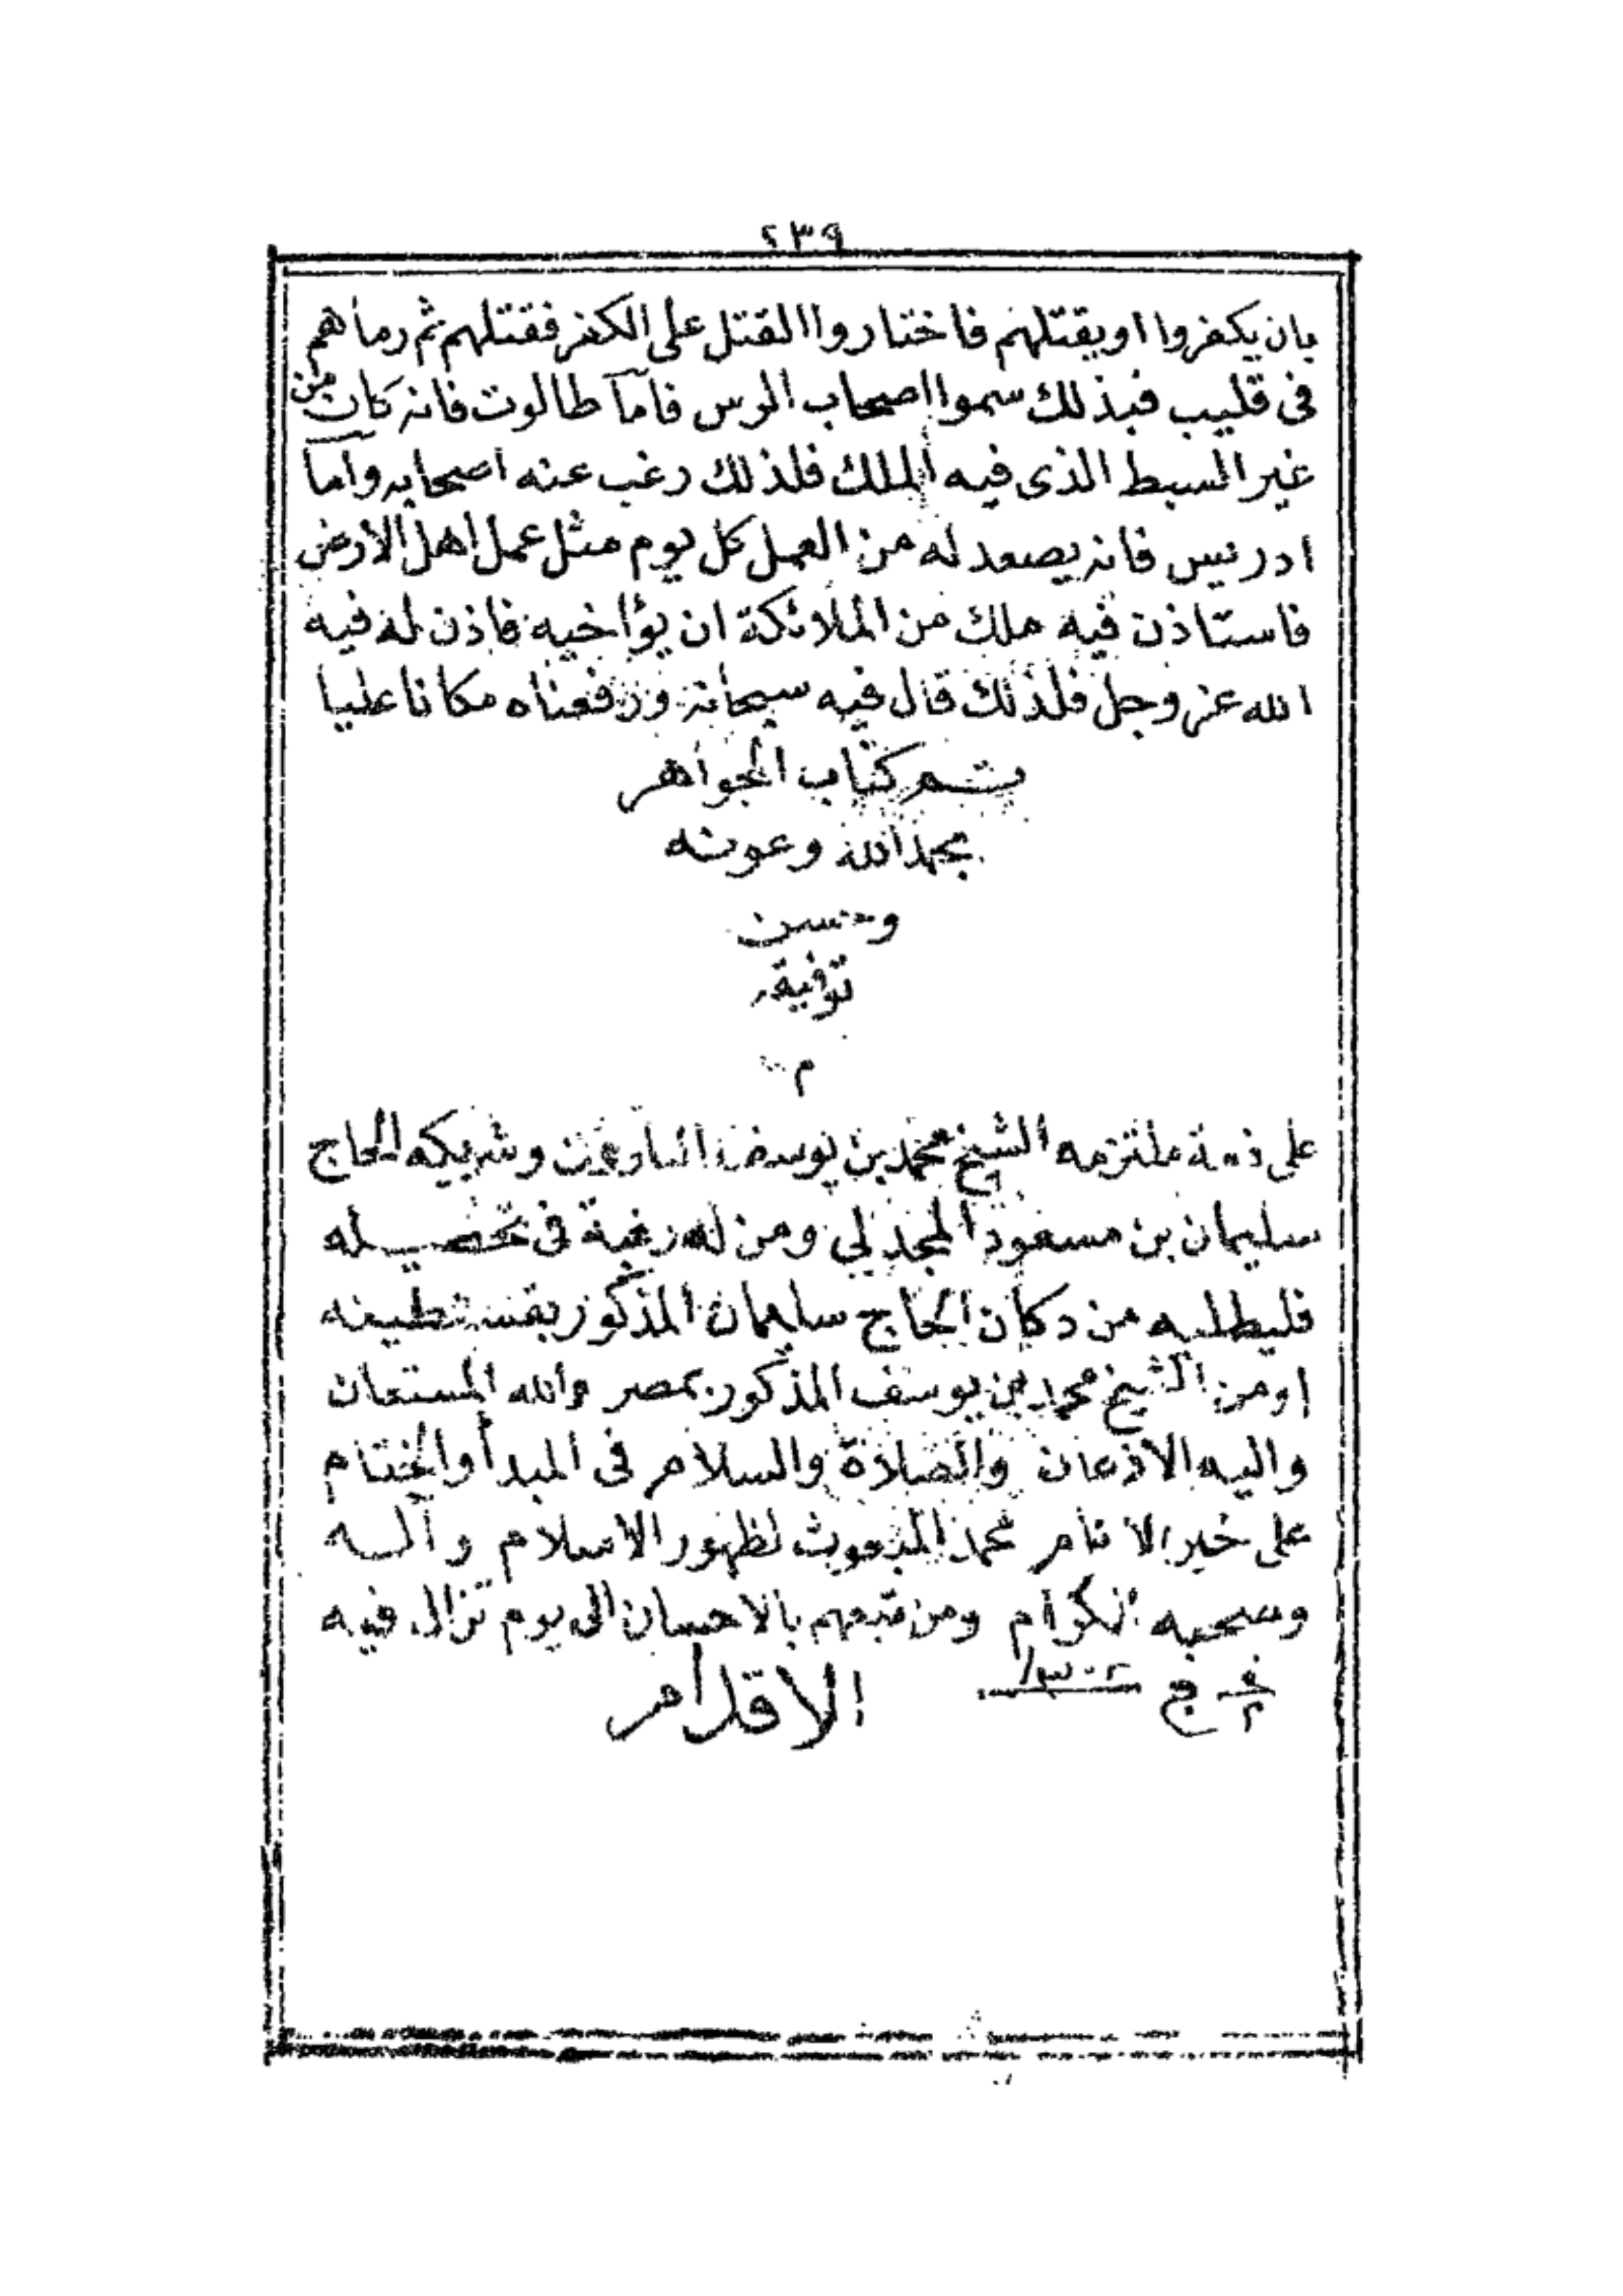 ٢٣٩
بان يكفروا او يقتلهم فاختاروا القتل على الكفر فقتلهم ثم رماهم
فى قليب فبذلك سموا اصحاب الرس فامآ طالوت فانه كان من
غير السبط الذى فيه الملك فلذلك رغب عنه اصحابه وامآ
ادريس فانه يصعد له من العمل كل يوم مثل عمل اهل الارض
فاستاذن فيه ملك من الملائكة ان يؤاخيه فاذن له فيه
الله عز وجل فلذلك قال فيه سبحانه ورفعناه مكانا عليا
تم كتاب الجواهر
بحمد الله وعونه
وحسن
توفيقه
م
على ذمة ملتزمه الشيخ محمد بن يوسف البارونى وشريكه الحاج
سليمان بن مسعود المجدلي ومن له رغبة فى تحصيله
فليطلبه من دكان الحاج سليمان المذكور بقسنطينه
او من الشيخ محمد بن يوسف المذكور بمصر والله المستعان
واليه الاذعان والصلاة والسلام فى المبدأ والختام
على خير الانام محمد المبعوث لظهور الاسلام وآله
وصحبه الكرام ومن تبعهم بالاحسان الى يوم تزال فيه
الاقدام
ج ١٣٠٢